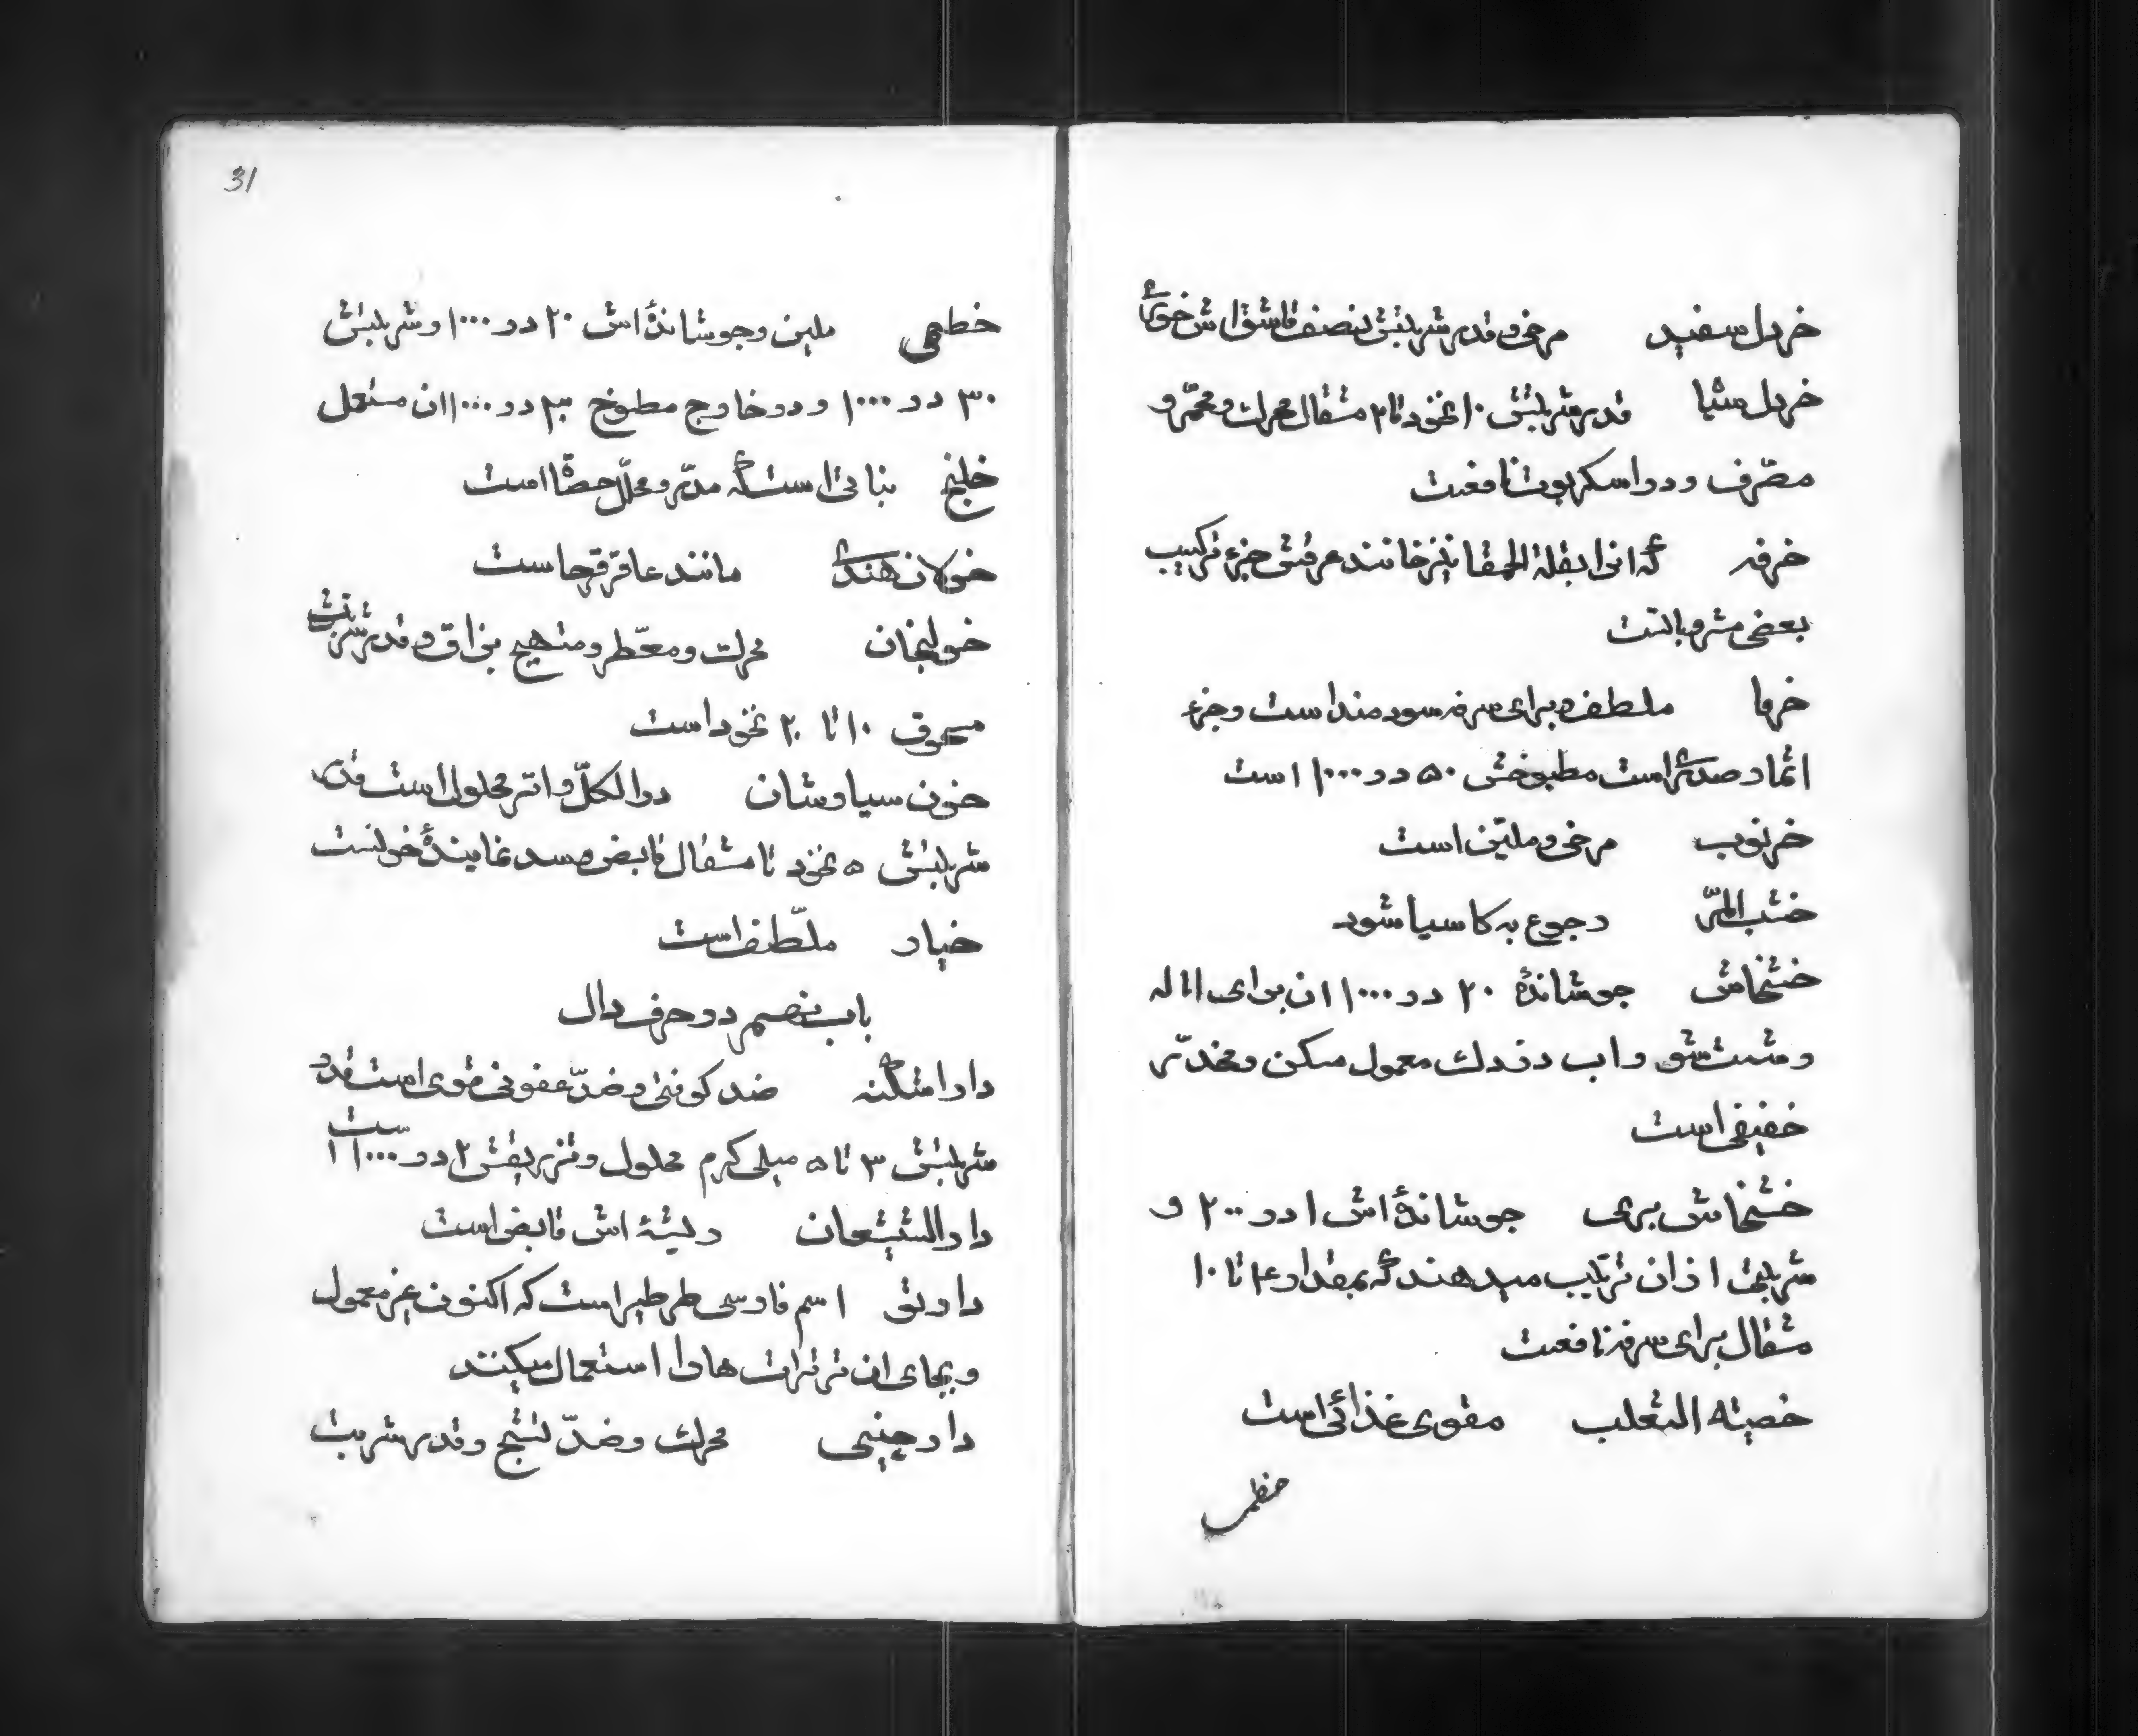 خردل سفید مرخی و قدر شربتش نصف قاشق اش خوری
خردل مشیا قدر شربتش ۱۰ نخود تا ۲ مثقال محرک و محمّر و
مصّرف و در اسکربوت نافعست
خرفه که انرا بقلة الحمقا نیز خانند عرقش جزء ترکیب
بعضی مشروباتست
خرما ملطف و برای سرفه سودمند است و جزء
اثمار صدری است مطبوخش ۵۰ در ۱۰۰۰ است
خرنوب مرخی و ملیّن است
خشب المرّ رجوع به کاسیا شود
خشخاش جوشاندهٔ ۲۰ در ۱۰۰۰ ان برای اماله
و شست شو و اب دزدک معمول مسکن و مخدّر
خفیفی است
خشخاش بری جوشاندهٔ اش ۱ در ۲۰۰ و
شربتی از ان ترتیب میدهند که بمقدار ۴ تا ۱۰
مثقال برای سرفه نافعست
خصیته الثعلب مقوی غذائی است
خطمی
31
خطمی ملین و جوشاندهٔ اش ۲۰ در ۱۰۰۰ و شربتش
۳۰ در ۱۰۰۰ و در خارج مطبوخ ۳۰ در ۱۰۰۰ ان مستعمل
خلنج نباتی است که مدّر و محلّل حصاة است
خولان هندی مانند عاقرقرحا است
خولنجان محرک و معّطر و متهیج بزاق و قدر شربتش
مسحوق ۱۰ تا ۲۰ نخود است
خون سیاوشان در الکلّ و اتر محلول است قدر
شربتش ۵ نخود تا مثقال قابض و سد نمایندهٔ خونست
خیار ملّطف است
باب نهم در حرف دال
دار اشکنه ضد کوفتی و ضدّ عفونی قوی است قدر
شربتش ۳ تا ۵ میلی گرم محلول و تزریقش ۲ در ۱۰۰۰ است
دار الشیشعان ریشهٔ اش قابض است
دارتو اسم فارسی طرطیر است که اکنون غیر معمول
و بجای ان ترترات ها را استعمال میکنند
دارچینی محرک و ضدّ تشنج و قدر شربت